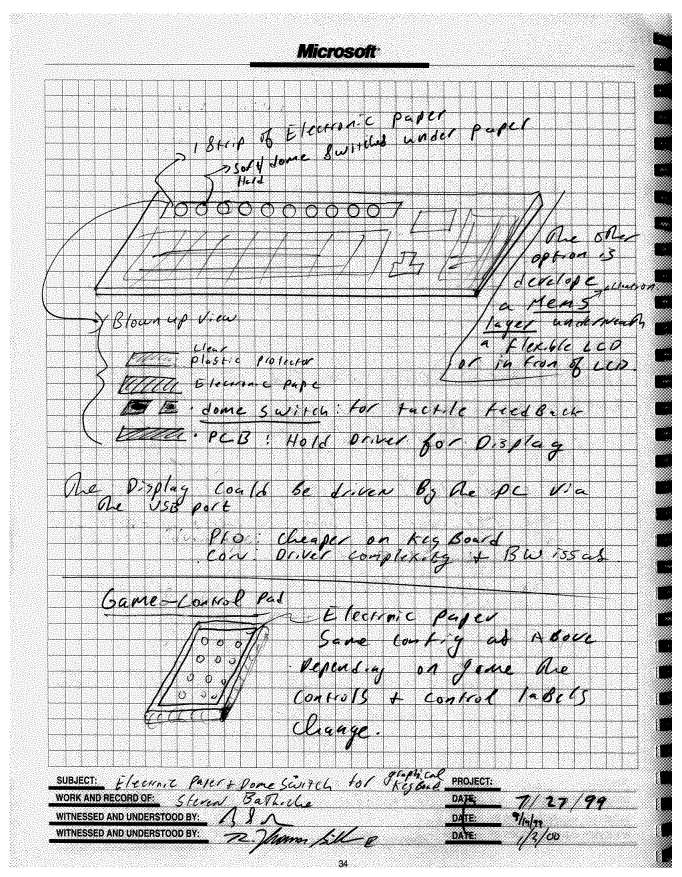 Microsoft
1 Strip of Electronic Paper
Soft dome Switches under paper
Hard
The other
option is
develope
a Mems
layer underneath
a flexible LCD
or in fron of LCD.
Blown up View
Clear
Plastic Protector
Electronic Pape
dome Switch : for tactile feedBack
PCB : Hold Driver for Display
The Display could be driven By the PC via
the USB port
Pro : cheaper on KeyBoard
Con : Driver complexity + BW issues
Game-Control Pad
Electrnic Paper
Same config as Above
Depending on game the
controls + control laBels
change.
SUBJECT: Electrnic Paper + Dome Switch for graphical KeyBoard PROJECT:
WORK AND RECORD OF: Steven Bathiche DATE: 7/27/99
WITNESSED AND UNDERSTOOD BY: DATE:
WITNESSED AND UNDERSTOOD BY: DATE: 1/3/00
34